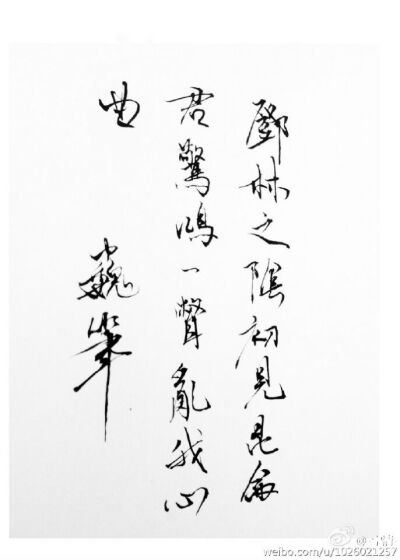 鄧林之陰初見昆侖
君驚鴻一瞥亂我心
曲
巍筆
weibo.com/u/1026021257